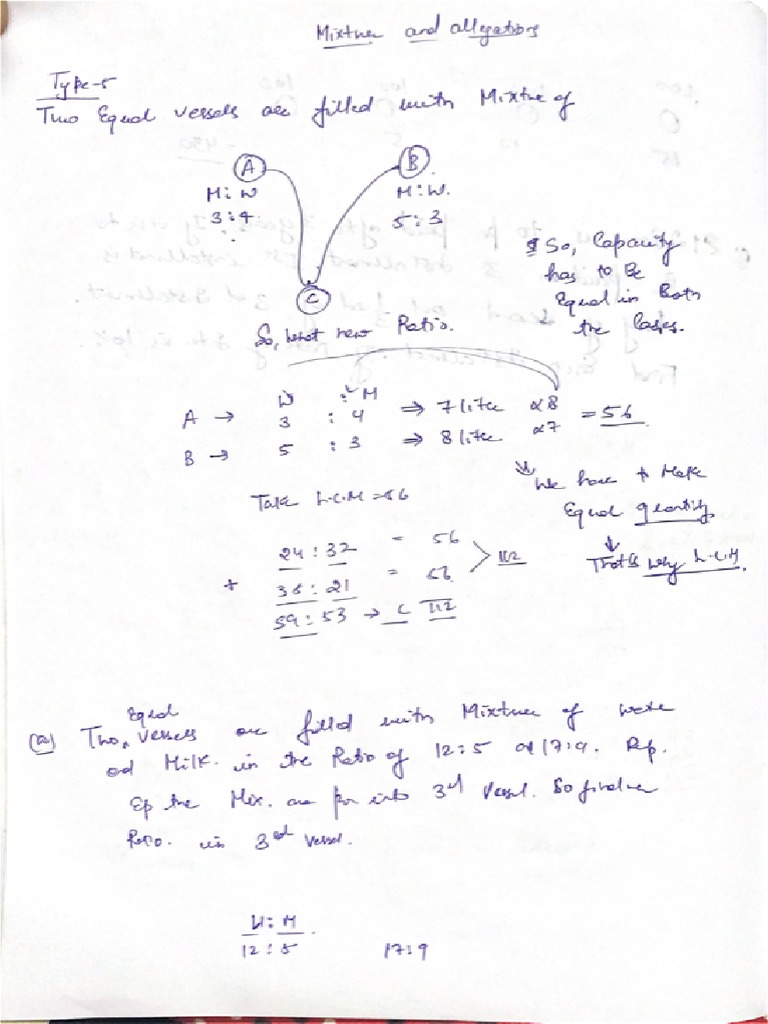 Mixture and allegations
Type-5
Two Equal vessels are filled with Mixture of
A B
M:W M:W.
3:4 5:3
So, Capacity
has to be
Equal in Both
the Cases.
C
So, what new Ratio.
W : M
A → 3 : 4 ⇒ 7 liter x8 = 56
B → 5 : 3 ⇒ 8 liter x7
We have to Make
Equal quantity
Take L.C.M = 56
That's why L.C.M.
24 : 32 = 56
+ 35 : 21 = 56 > 112
59 : 53 → C 112
(Q) Two Equal vessels are filled with Mixture of wate
ad Milk. in the Ratio of 12:5 & 17:9. Rep.
the Mix. are por into 3rd Vessel. So find new
in 3rd vessel.
W : M
12 : 5 17:9